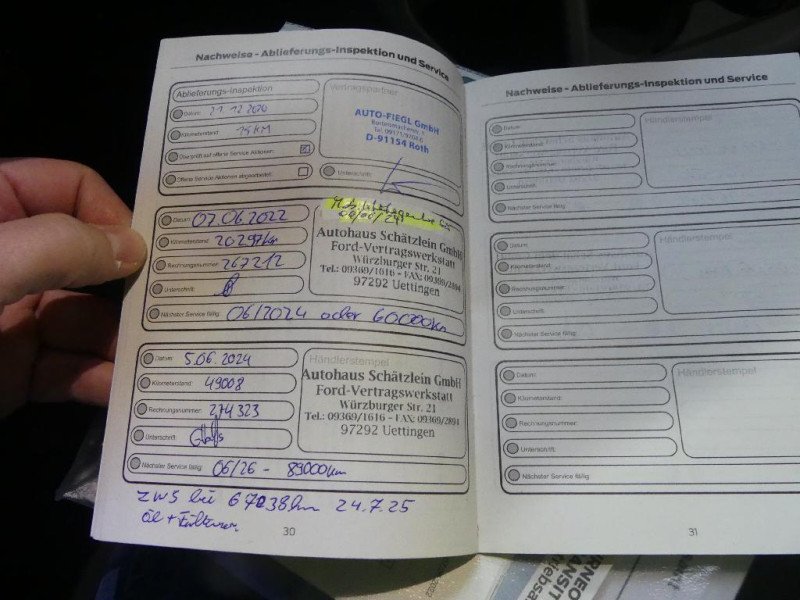 Nachweise - Ablieferungs-Inspektion und Service
Ablieferungs-Inspektion
Datum: 21.12.2020
Kilometerstand: 14 KM
Überprüft auf offene Service Aktionen:
Offene Service Aktionen abgearbeitet:
Vertragspartner
AUTO-FIEGL GmbH
Tel. 09171/9708-0
D-91154 Roth
Unterschrift:
Datum: 07.06.2022
Kilometerstand: 20297km
Rechnungsnummer: 267212
Unterschrift:
Nächster Service fällig: 06/2024 oder 60000km
Autohaus Schätzlein GmbH
Ford-Vertragswerkstatt
Würzburger Str. 21
Tel.: 09369/1616 - FAX: 09369/2894
97292 Uettingen
Datum: 5.06.2024
Kilometerstand: 49008
Rechnungsnummer: 274323
Unterschrift:
Nächster Service fällig: 06/26 - 89000km
Händlerstempel
Autohaus Schätzlein GmbH
Ford-Vertragswerkstatt
Würzburger Str. 21
Tel.: 09369/1616 - FAX: 09369/2894
97292 Uettingen
ZWS bei 67038km 24.7.25
Öl +
30
Nachweise - Ablieferungs-Inspektion und Service
Datum:
Kilometerstand:
Rechnungsnummer:
Unterschrift:
Nächster Service fällig:
Händlerstempel
Datum:
Kilometerstand:
Rechnungsnummer:
Unterschrift:
Nächster Service fällig:
Händlerstempel
Datum:
Kilometerstand:
Rechnungsnummer:
Unterschrift:
Nächster Service fällig:
Händlerstempel
31